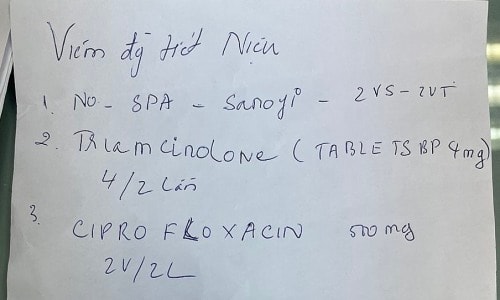 Viêm đg tiết Niệu
1. No - SPA - Sanofi - 2VS - 2VT
2. TRiamcinolone (TABLETS BP 4mg)
4/2 Lần
3. CIPROFLOXACIN 500mg
2V/2L